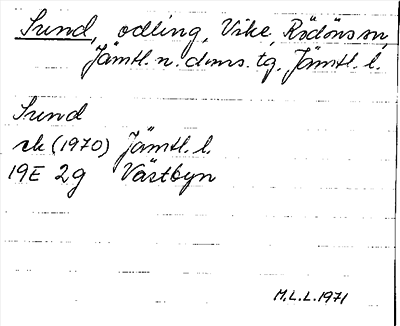 Sund, odling, Vike, Rödöns sn,
Jämtl. n. doms. tg, Jämtl. l.
Sund
ek (1970) Jämtl. l.
19E 2g Västbyn
M.L.L. 1971